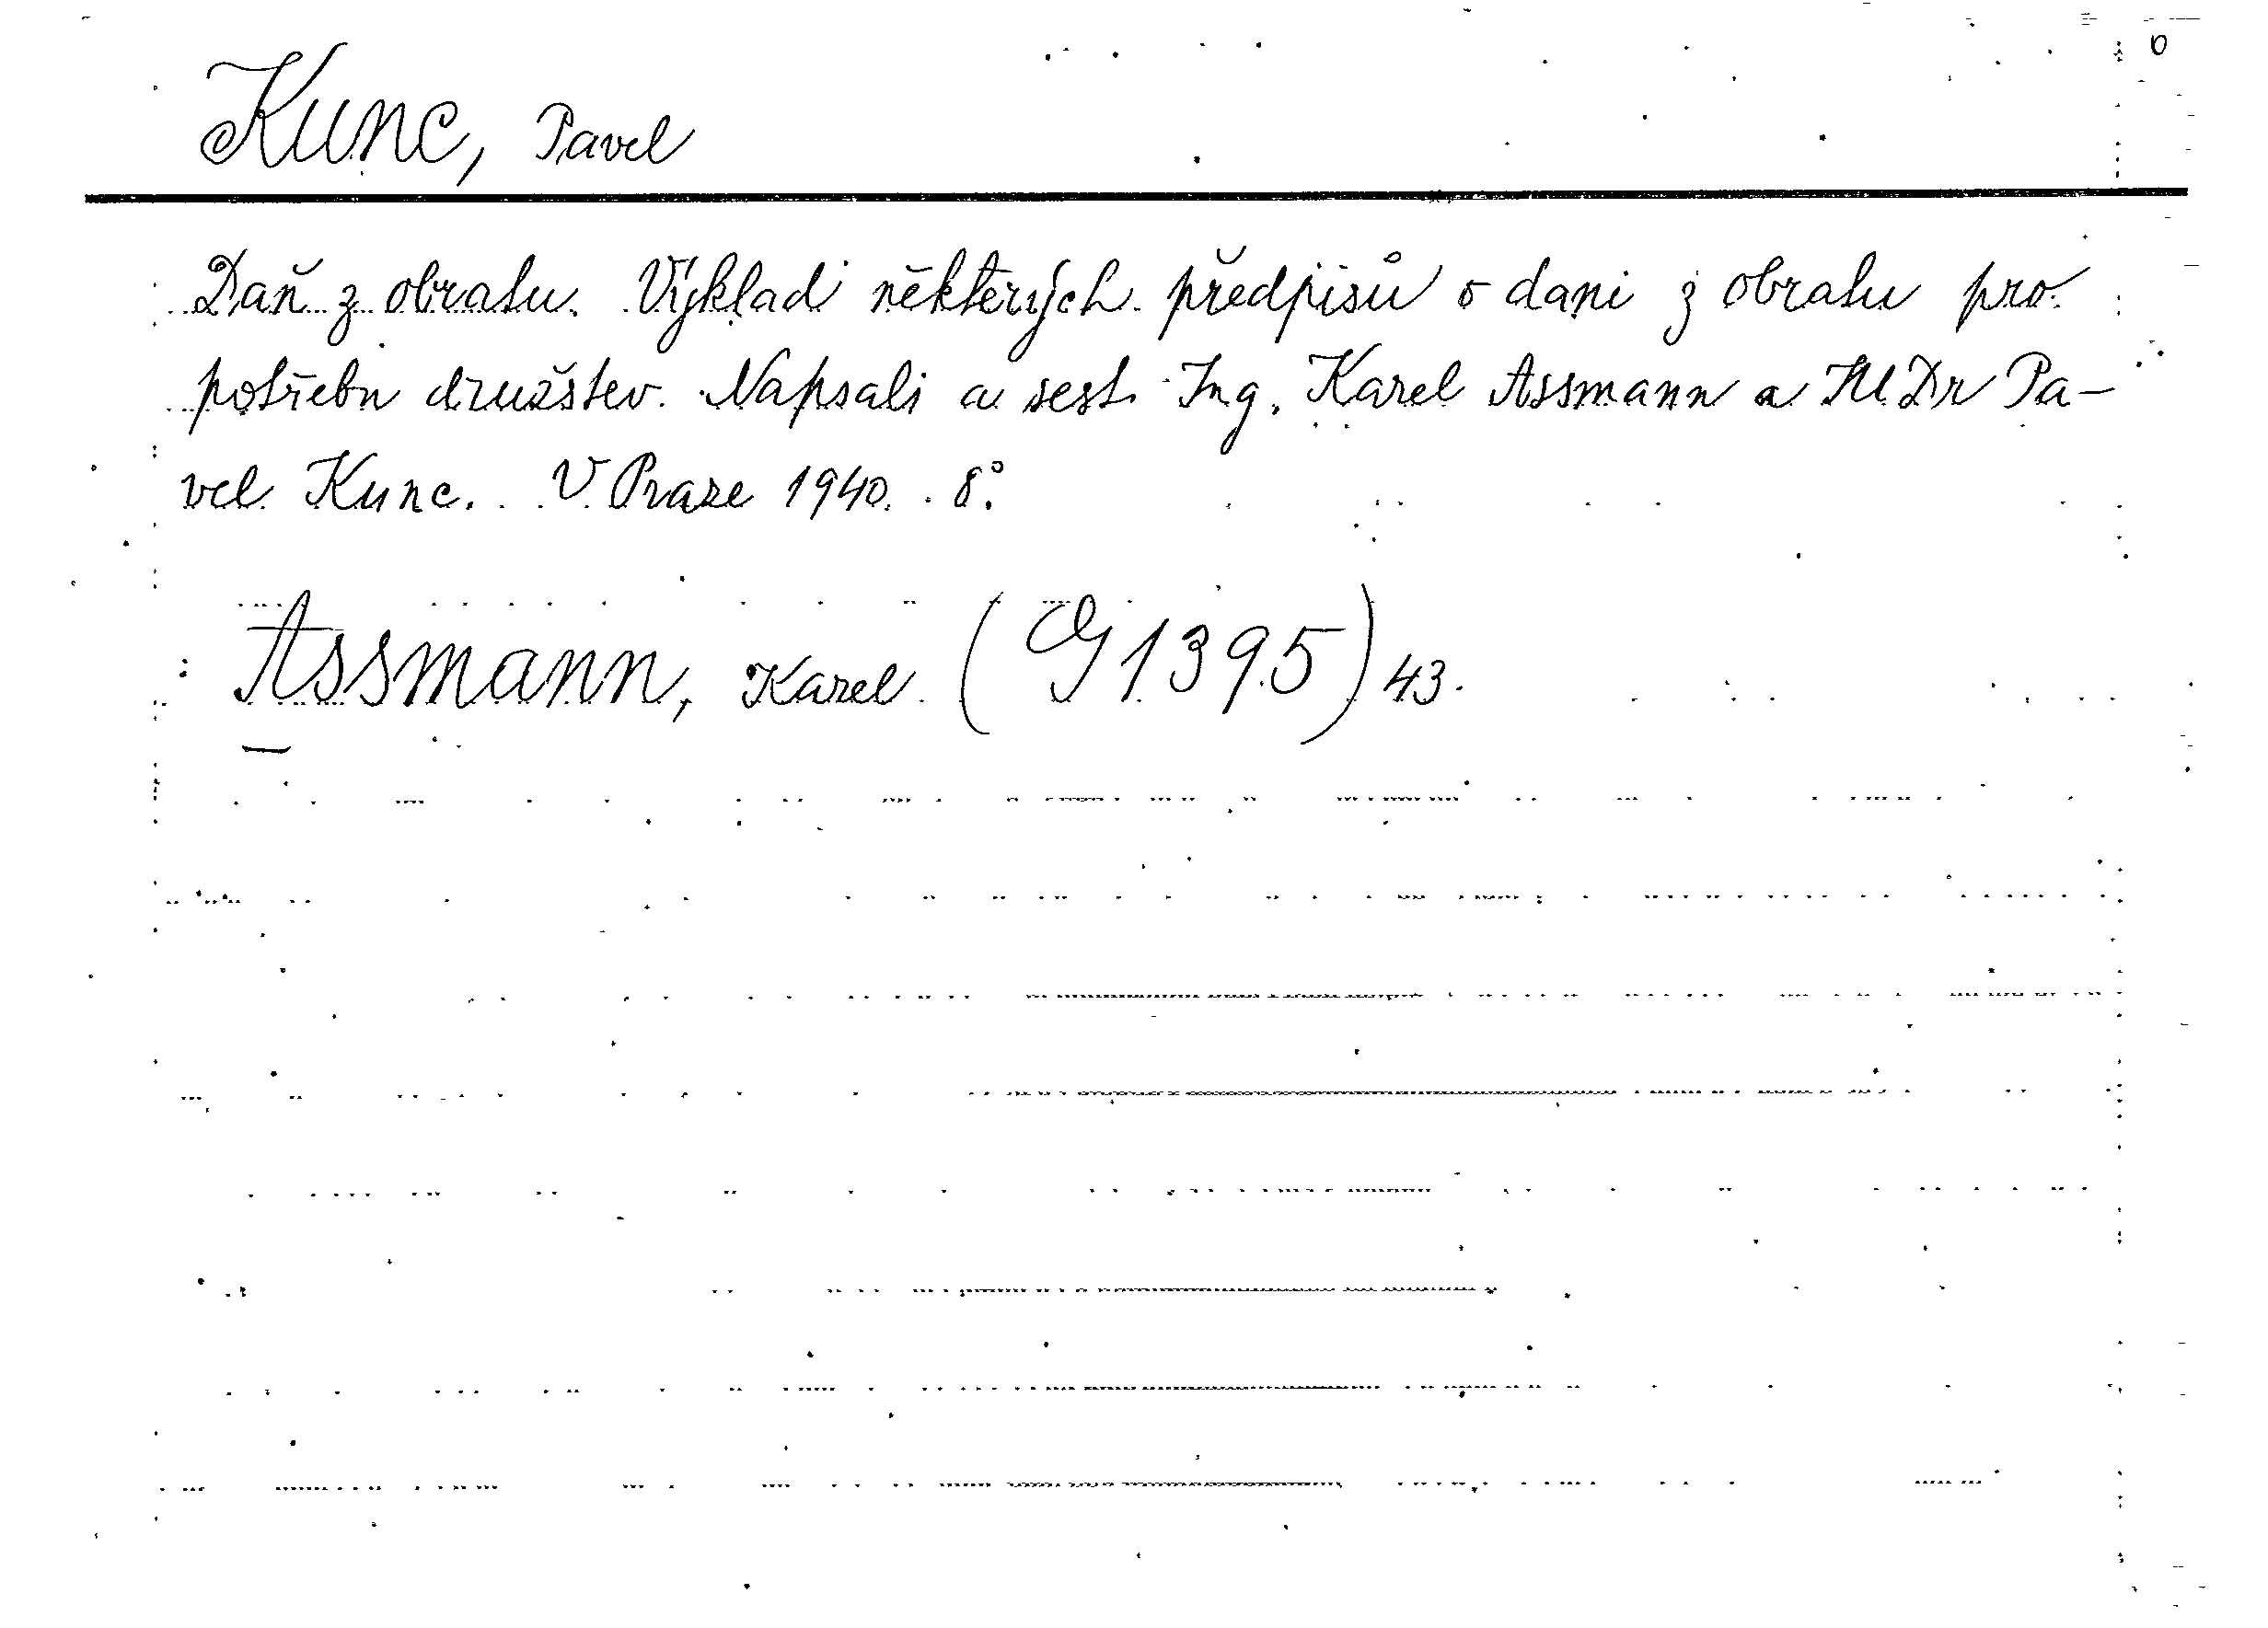 Kunc, Pavel
Daň z obratu. Výklad některých předpisů o dani z obratu pro
potřebu družstev. Napsali a sest. Ing. Karel Assmann a JUDr Pa-
vel Kunc. V Praze 1940. 8°.
Assmann, Karel (G 1395) 43.